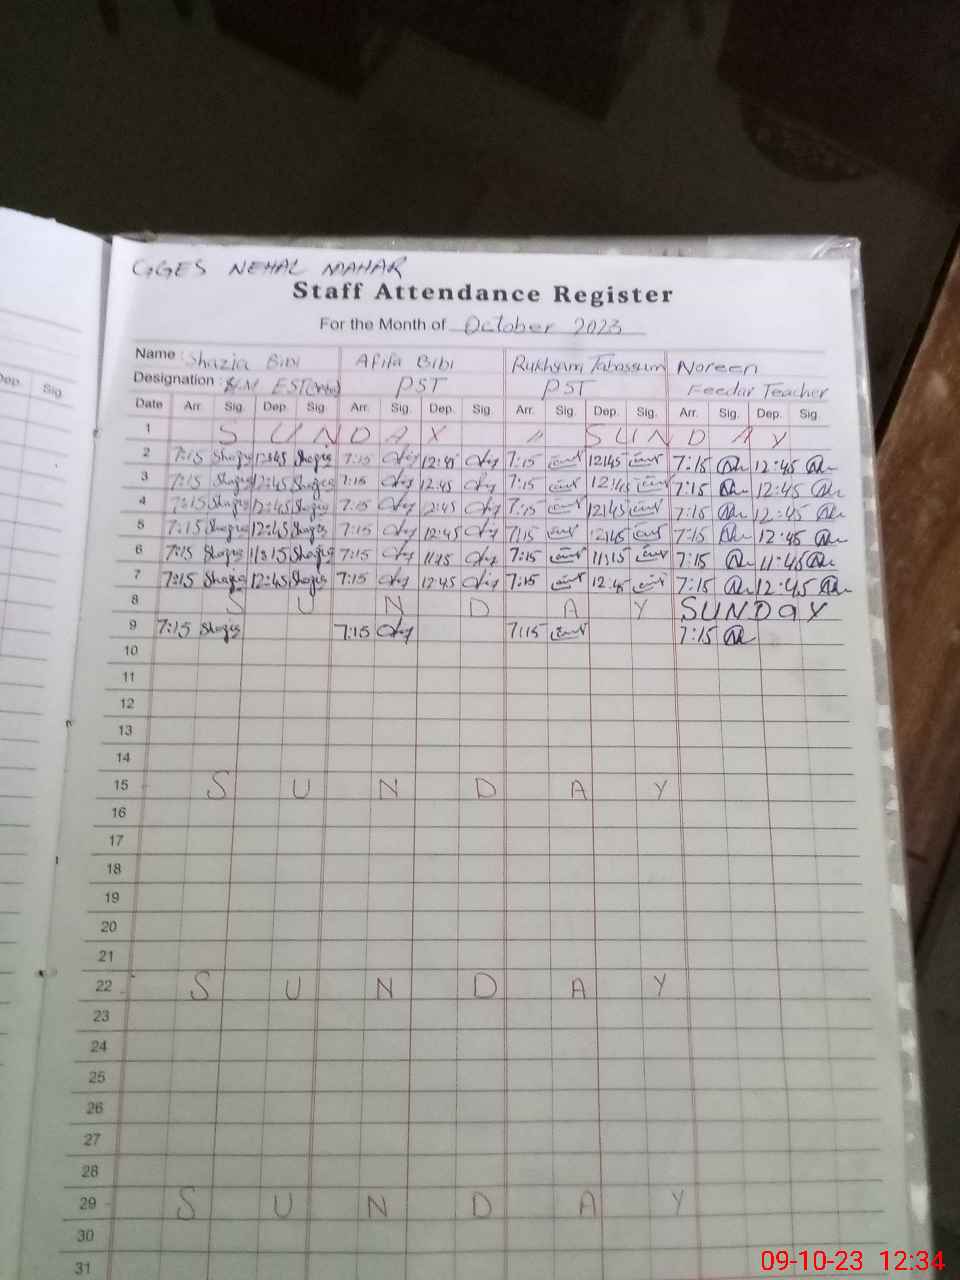 GGES NEHAL MAHAR
Staff Attendance Register
For the Month of October 2023
Name : Shazia Bibi Afifa Bibi Rukhsam Tabassum Noreen
Designation : PST PST Feedar Teacher
Date Arr. Sig. Dep. Sig Arr. Sig. Dep. Sig. Arr. Sig. Dep. Sig. Arr. Sig. Dep. Sig.
1 S U N D A Y " S U N D A Y
2 7:15 Shazia 12:45 Shazia 7:15 12:45 7:15 12:45 7:15 12:45
3 7:15 Shazia 12:45 Shazia 7:15 12:45 7:15 12:45 7:15 12:45
4 7:15 Shazia 12:45 Shazia 7:15 12:45 7:15 12:45 7:15 12:45
5 7:15 Shazia 12:45 Shazia 7:15 12:45 7:15 12:45 7:15 12:45
6 7:15 Shazia Shazia 7:15 11:15 7:15 11:15 7:15 11:45
7 7:15 Shazia 12:45 Shazia 7:15 12:45 7:15 12:45 7:15 12:45
8 S U N D A Y SUNDAY
9 7:15 Shazia 7:15 7:15 7:15
10
11
12
13
14
15 S U N D A Y
16
17
18
19
20
21
22 S U N D A Y
23
24
25
26
27
28
29 S U N D A Y
30
31
Dep. Sig.
09-10-23 12:34